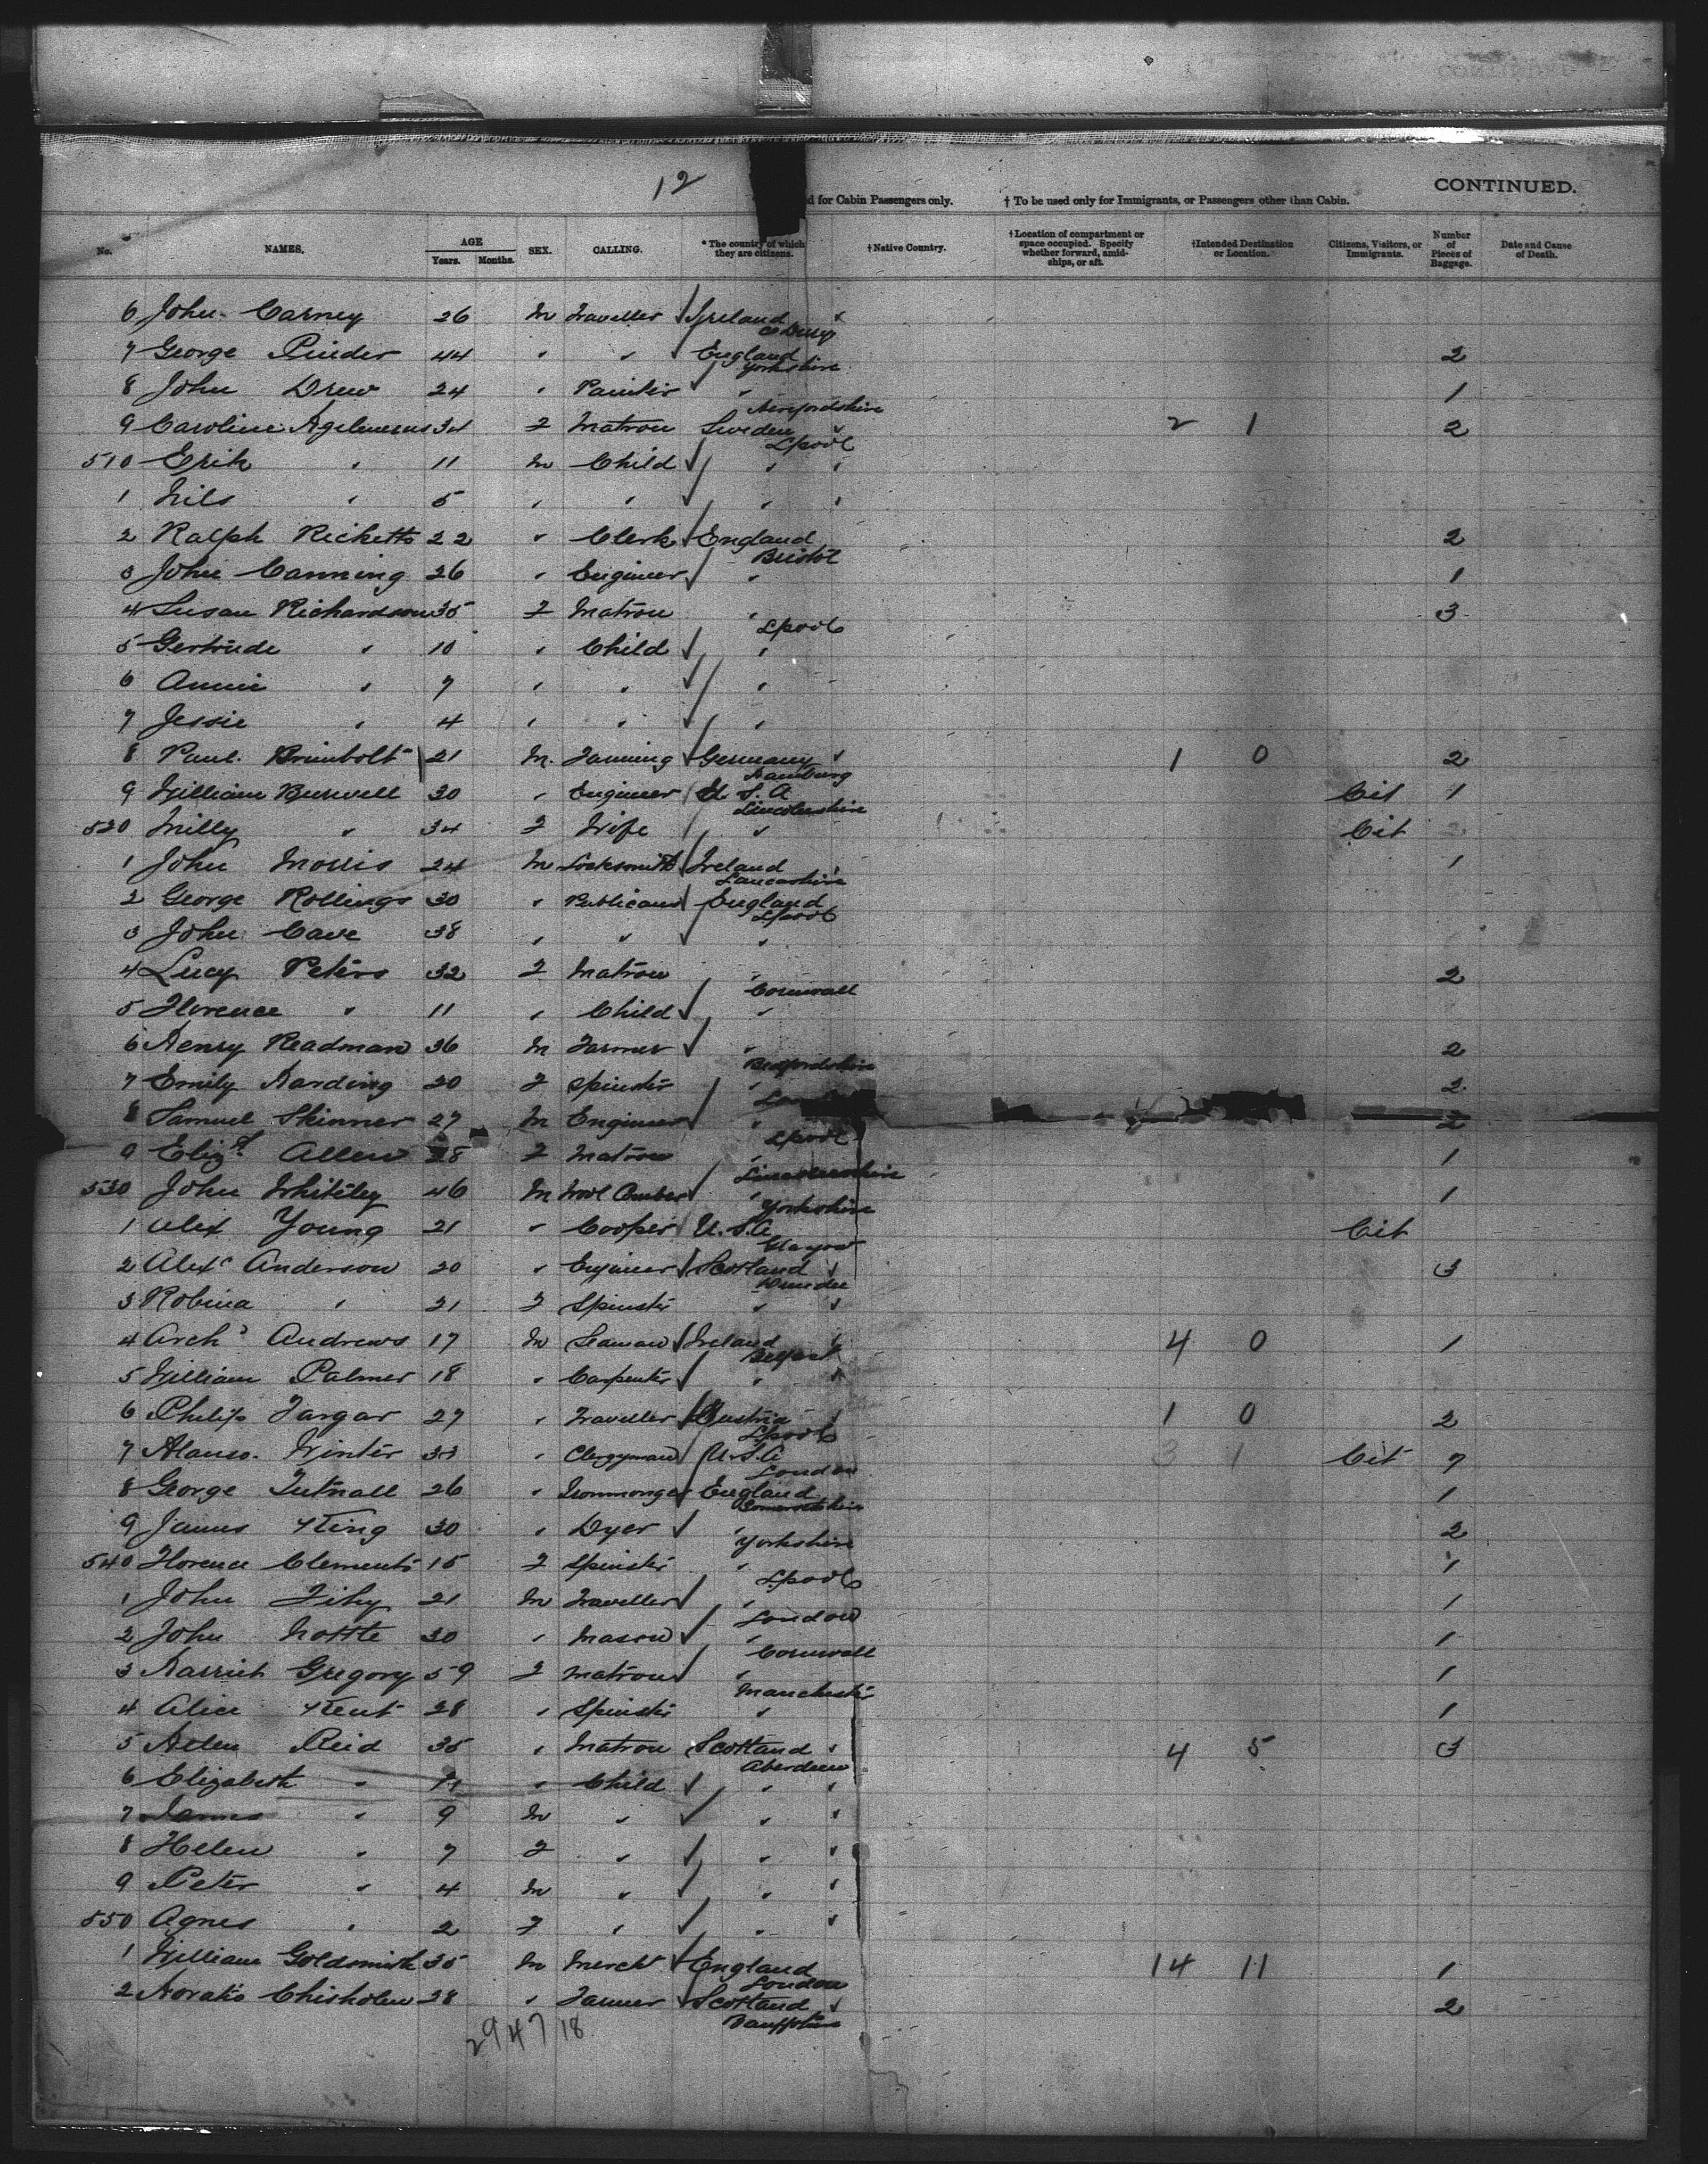 12
CONTINUED.
d for Cabin Passengers only. † To be used only for Immigrants, or Passengers other than Cabin.
No. NAMES. AGE Years. Months. SEX. CALLING. * The country of which they are citizens. † Native Country. † Location of compartment or space occupied. Specify whether forward, amidships, or aft. † Intended Destination or Location. Citizens, Visitors, or Immigrants. Number of Pieces of Baggage. Date and Cause of Death.
6 John Carney 26 M Traveller Ireland
7 George Pinder 44 " " England Yorkshire 2
8 John Drew 24 " Painter " Herefordshire 1
9 Caroline 34 F Matron Sweden L'pool 2 1 2
510 Erik " 11 M Child " "
1 Nils " 5 " " " "
2 Ralph Ricketts 22 " Clerk England Bristol 2
3 John Canning 26 " Engineer " 1
4 Susan Richardson 35 F Matron " L'pool 3
5 Gertrude " 10 " Child "
6 Annie " 7 " " "
7 Jessie " 4 " " "
8 Paul 21 M. Germany Hamburg 1 0 2
9 William Burwell 30 " Engineer U.S.A Lincolnshire Cit 1
520 Milly " 34 F Wife " Cit
1 John Morris 24 M Locksmith Ireland Lancashire 1
2 George Rollings 30 " Publican England L'pool
3 John Cave 38 " " "
4 Lucy Peters 32 F Matron " Cornwall 2
5 Florence " 11 " Child "
6 Henry Readman 36 M Farmer " Bedfordshire 2
7 Emily Harding 20 F Spinster " 2
8 Samuel Skinner 27 M Engineer " L'pool 2
9 Eliz. Allen 28 F Matron " Lincolnshire 1
530 John Whiteley 46 M Wool Comber " Yorkshire 1
1 Alex Young 21 " Cooper U.S.A Glasgow Cit
2 Alexr Anderson 20 " Engineer Scotland Dundee 3
3 Robina " 21 F Spinster " "
4 Archd Andrews 17 M Seaman Ireland Belfast 4 0 1
5 William Palmer 18 " Carpenter " "
6 Philip Targar 27 " Traveller Austria L'pool 1 0 2
7 Alonso Winter 33 " Clergyman U.S.A London 3 1 Cit 7
8 George Tutnall 26 " Ironmonger England Somersetshire 1
9 James King 30 " Dyer " Yorkshire 2
540 Florence Clements 15 F Spinster " L'pool 1
1 John 21 M Traveller " London 1
2 John Nottle 30 " Mason " Cornwall 1
3 Harriet Gregory 59 F Matron " Manchester 1
4 Alice Kent 28 " Spinster " 1
5 Helen Reid 35 " Matron Scotland Aberdeen 4 5 3
6 Elizabeth " 11 " Child " "
7 James " 9 M " " "
8 Helen " 7 F " " "
9 Peter " 4 M " " "
550 Agnes " 2 F " " "
1 William Goldsmith 35 M Mercht England London 14 11 1
2 Horatio Chisholm 28 " Farmer Scotland Banffshire 2
29 47 18